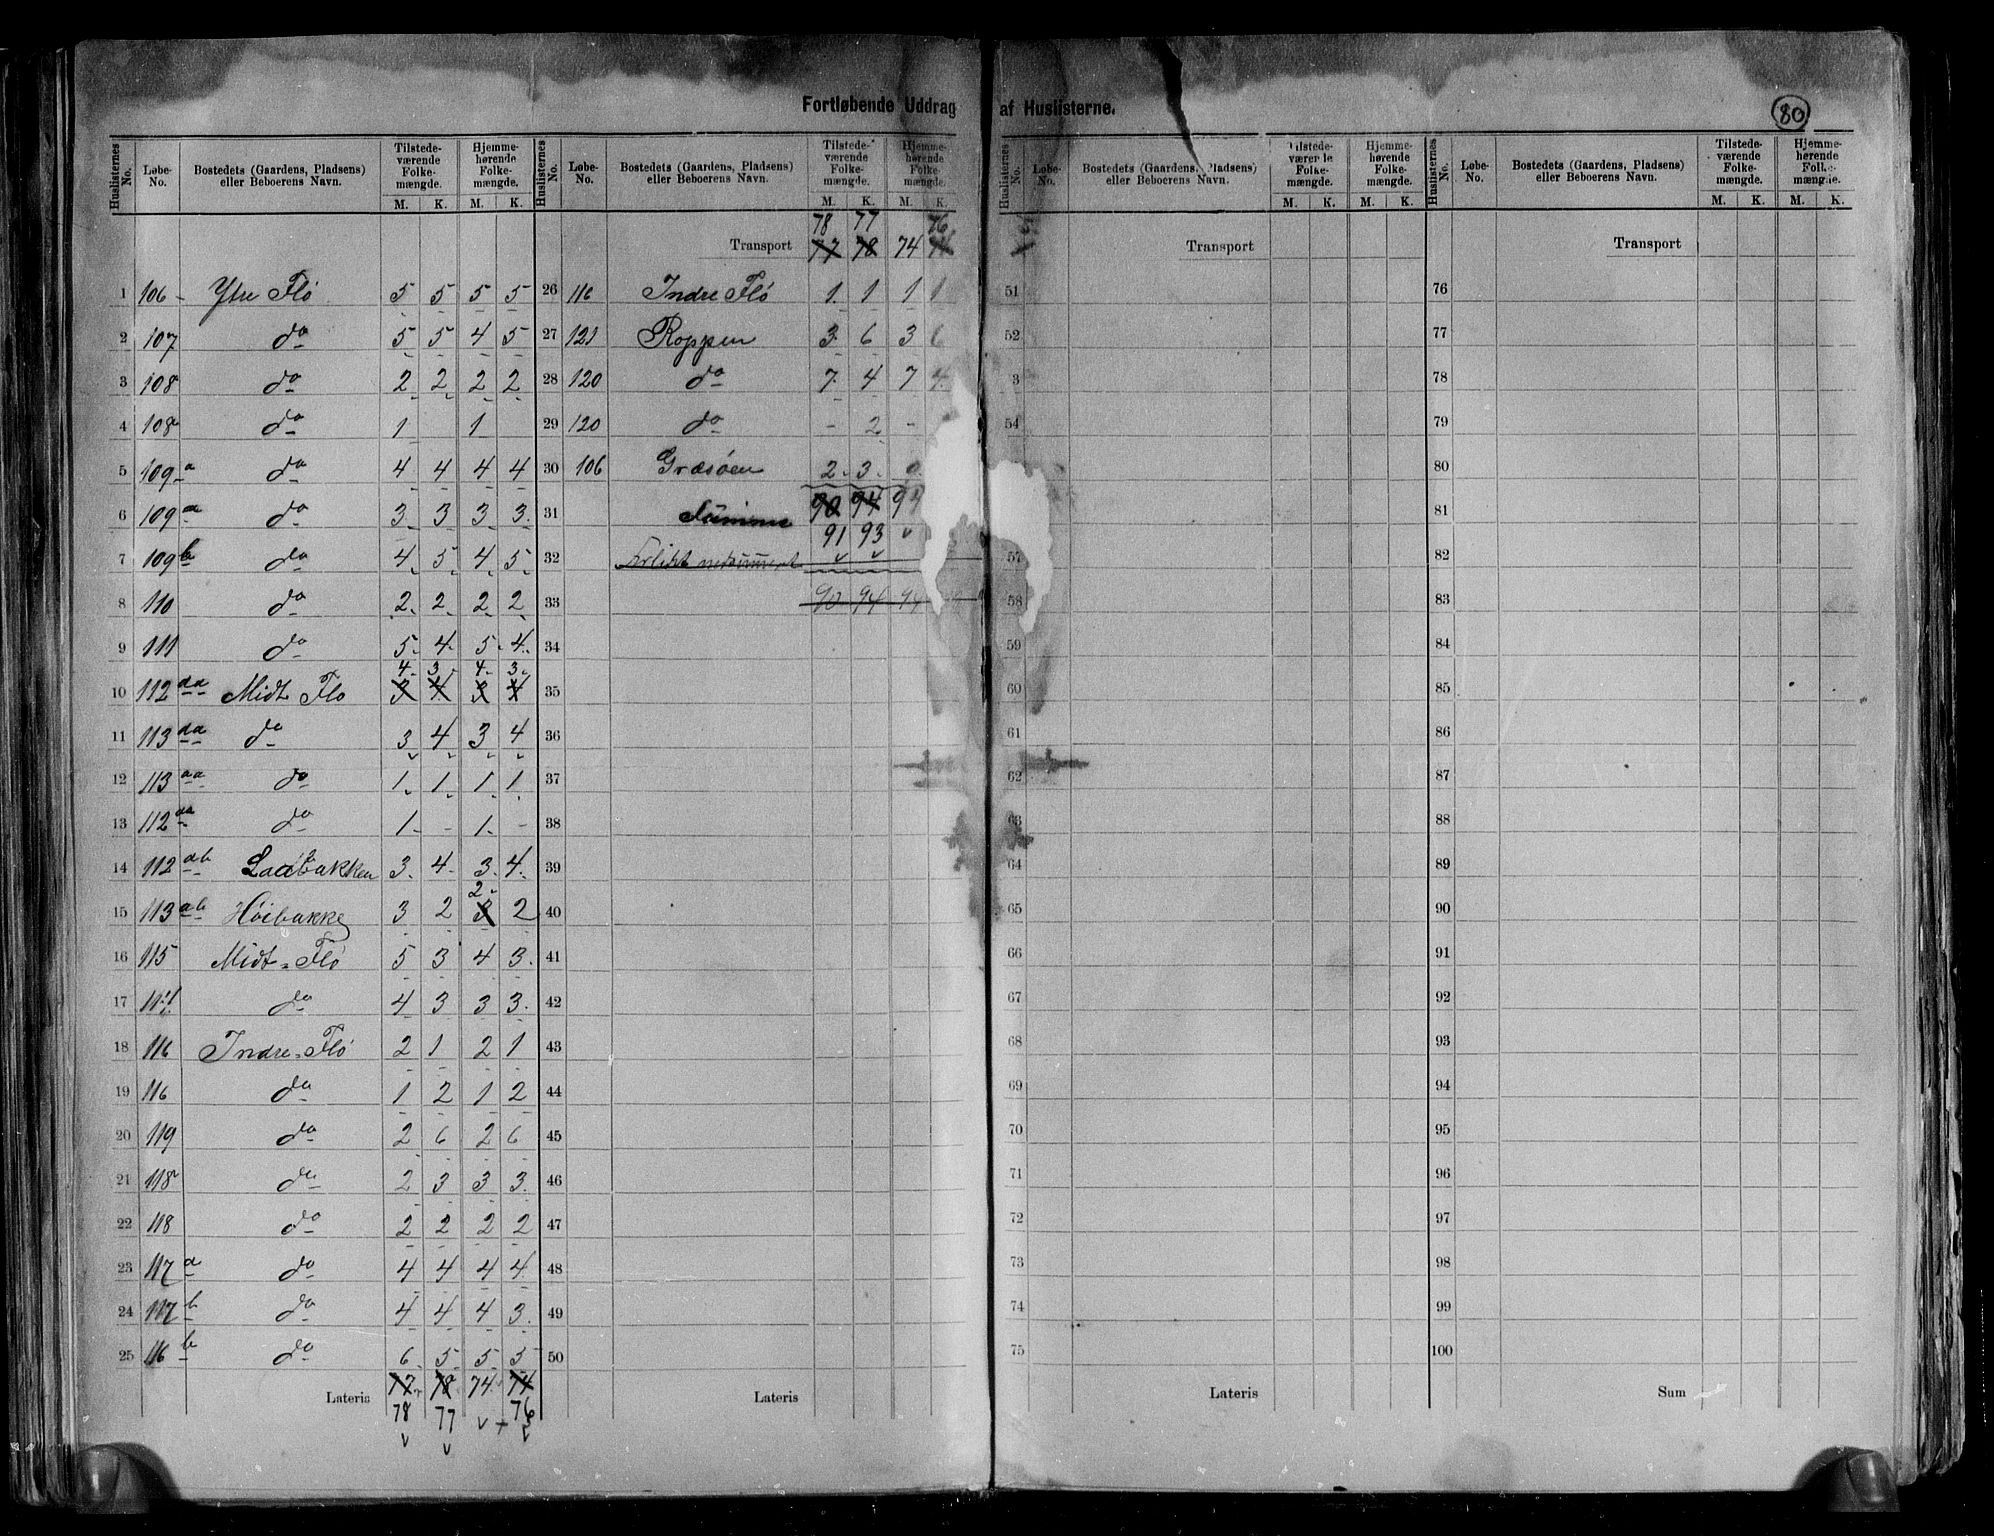 Fortløbende Uddrag af Huslisterne.
80
Huslisternes No. Løbe-No. Bostedets (Gaardens, Pladsens) eller Beboerens Navn. Tilstedeværende Folkemængde. M. K. Hjemmehørende Folkemængde. M. K.
1 106 Ytre Flø 5 5 5 5
2 107 do 5 5 4 5
3 108 do 2 2 2 2
4 108 do 1 1
5 109 a do 4 4 4 4
6 109 a do 3 3 3 3
7 109 b do 4 5 4 5
8 110 do 2 2 2 2
9 111 do 5 4 5 4
4 3 4 3
10 112 aa Midt Flø 3 4 3 4
11 113 aa do 3 4 3 4
12 113 aa do 1 1 1 1
13 112 aa do 1 - 1 -
14 112 ab Ladbakken 3 4 3 4
2
15 113 ab Høibakke 3 2 3 2
16 115 Midt-Flø 5 3 4 3
17 114 do 4 3 3 3
18 116 Indre-Flø 2 1 2 1
19 116 do 1 2 1 2
20 119 do 2 6 2 6
21 118 do 2 3 3 3
22 118 do 2 2 2 2
23 117 a do 4 4 4 4
24 117 b do 4 4 4 3
25 116 b do 6 5 5 5
Lateris 77 78 74 74
78 77 76
Huslisternes No. Løbe-No. Bostedets (Gaardens, Pladsens) eller Beboerens Navn. Tilstedeværende Folkemængde. M. K. Hjemmehørende Folkemængde. M. K.
78 77 76
Transport 77 78 74 74
26 116 Indre Flø 1 1 1 1
27 121 Roppen 3 6 3 6
28 120 do 7 4 7 4
29 120 do - 2 -
30 106 Græsøen 2 3
31 Summa 90 94
91 93
32
33 90 94 94
34
35
36
37
38
39
40
41
42
43
44
45
46
47
48
49
50
Lateris
No. Løbe-No. Bostedets (Gaardens, Pladsens) eller Beboerens Navn. Folkemængde. M. K. Hjemmehørende Folkemængde. M. K.
Transport
51
52
3
54
57
58
59
60
61
62
63
64
65
66
67
68
69
70
71
72
73
74
75
Lateris
Huslisternes No. Løbe-No. Bostedets (Gaardens, Pladsens) eller Beboerens Navn. Tilstedeværende Folkemængde. M. K. Hjemmehørende Folkemængde. M. K.
Transport
76
77
78
79
80
81
82
83
84
85
86
87
88
89
90
91
92
93
94
95
96
97
98
99
100
Sum